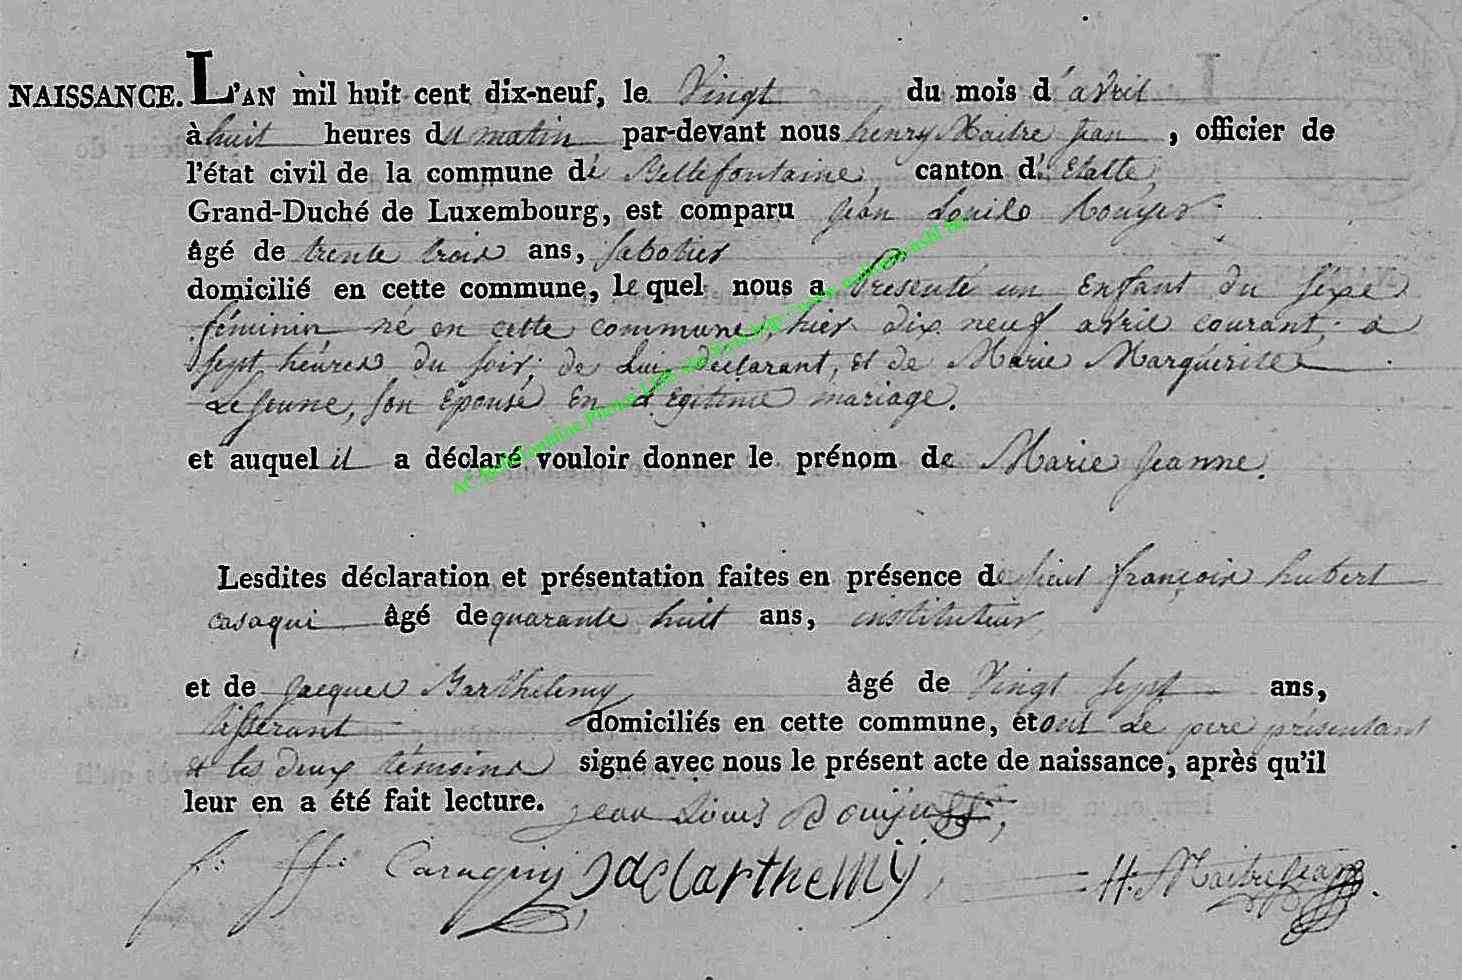 NAISSANCE. L'AN mil huit cent dix-neuf, le Vingt du mois d'avril
à huit heures du matin par-devant nous henry Maitre Jean, officier de
l'état civil de la commune dé Bellefontaine, canton d'. Etalle,
Grand-Duché de Luxembourg, est comparu Jean
âgé de trente trois ans, sabotier
domicilié en cette commune, lequel nous a Présenté un Enfant du sexe
féminin né en cette commune, hier dix neuf avril courant, à
sept heures du soir, de Lui déclarant, et de Marie Marguerite
LeJeune, son Epouse En Légitime mariage.
et auquel il a déclaré vouloir donner le prénom de Marie Jeanne.
Lesdites déclaration et présentation faites en présence de françois hubert
casaqui âgé de quarante huit ans, instituteur
et de Jacques Barthelemy âgé de Vingt sept ans,
tisserant domiciliés en cette commune, et ont Le pere présentant
et les deux témoins signé avec nous le présent acte de naissance, après qu'il
leur en a été fait lecture. jean Louis
H. Maitrejean